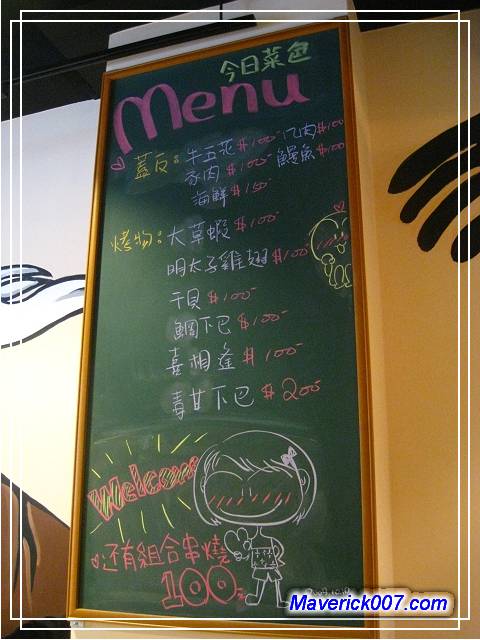 今日菜色
Menu
蓋反：牛五花$100 几肉$100
豕肉$100 鰻魚$100
海鮮$150
烤物：大草蝦$100
明太子雞翅$100
干貝$100
鯛下巴$100
喜相逢$100
青甘下巴$200
Welcome
还有組合串燒
100元
Maverick007.com